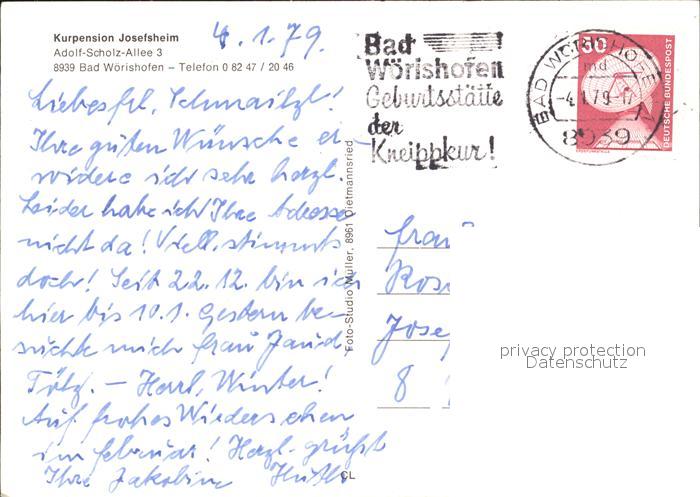 Kurpension Josefsheim
Adolf-Scholz-Allee 3
8939 Bad Wörishofen – Telefon 0 82 47 / 20 46
4.1.79.
Liebes Frl. Schmailzl!
Ihre guten Wünsche er
widere ich sehr herzl.
Leider habe ich Ihre Adresse
nicht da! Viell. stimmts
doch! Seit 22.12. bin ich
hier bis 10.1. Gestern be-
suchte mich Frau
Tölz. – Herrl. Winter!
Auf frohes Wiedersehen
im Februar! Herzl. grüßt
Ihre Jakobine
Foto-Studio Müller, 8961 Dietmannsried
CL
Bad
Wörishofen
Geburtsstätte
der
Kneippkur!
BAD WÖRISHOFEN
md
-4.1.79-17
8939
60
DEUTSCHE BUNDESPOST
Frau
Ros
Jose
8
privacy protection
Datenschutz